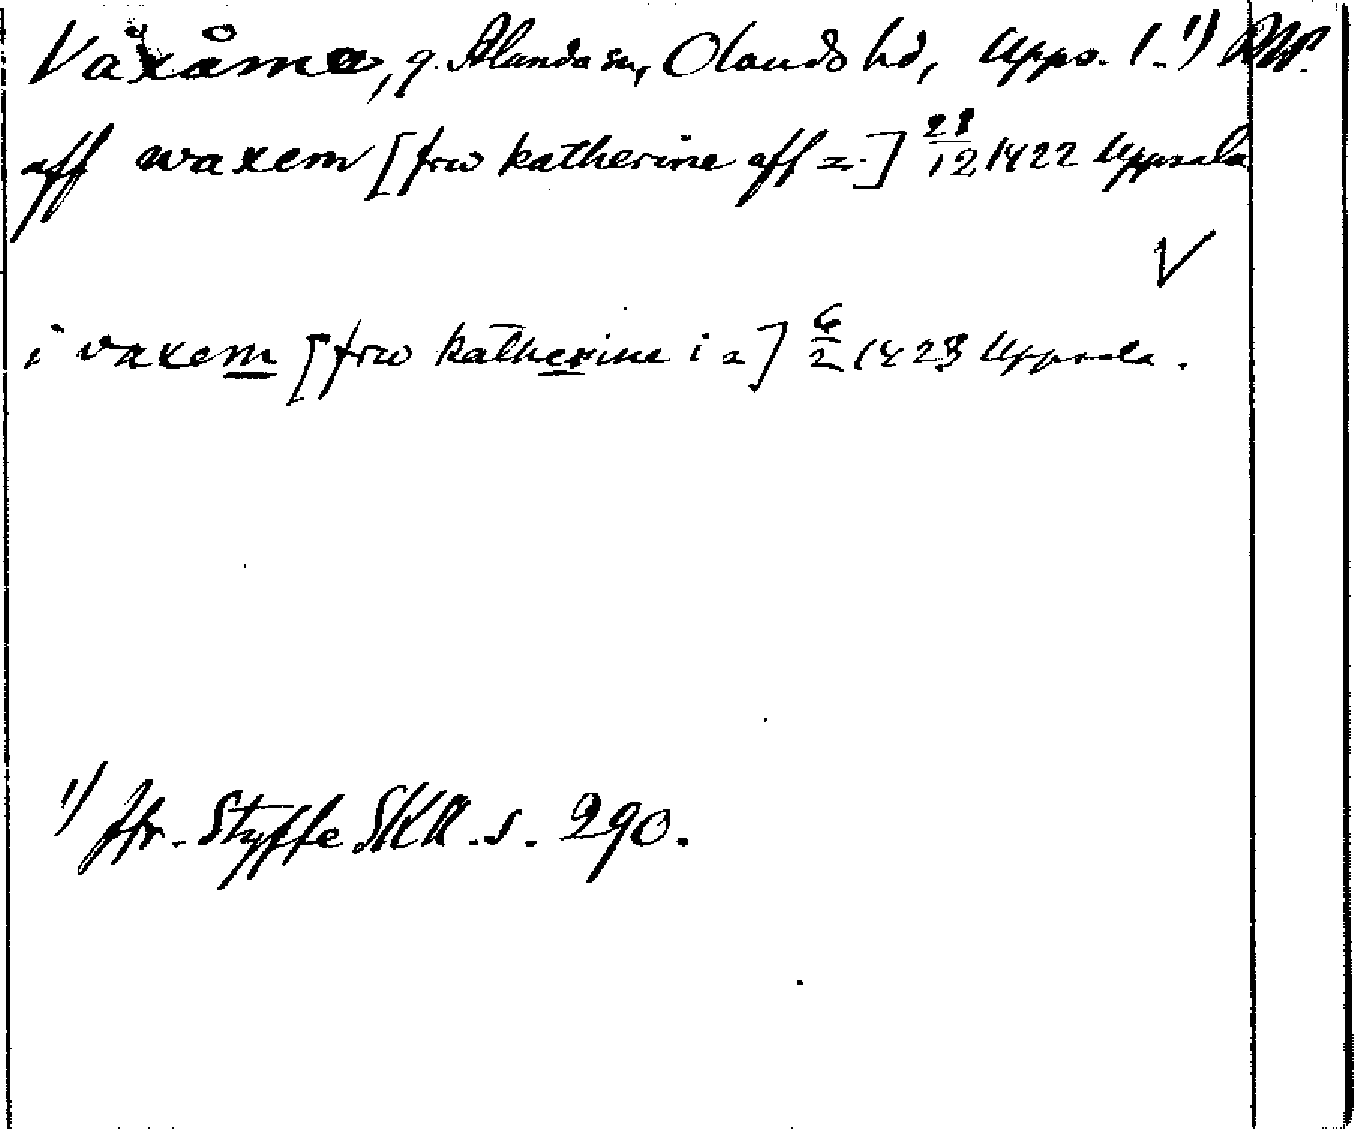 Växåma, g. Alunda sn, Olands hd, Upps. l. 1)
aff waxem [frw katherine aff =.] 28/12 1422 Uppsala
V
i vaxem [frw katherine i =] 6/2 1423 Uppsala.
1) Jfr. Styffe SKU. s. 290.